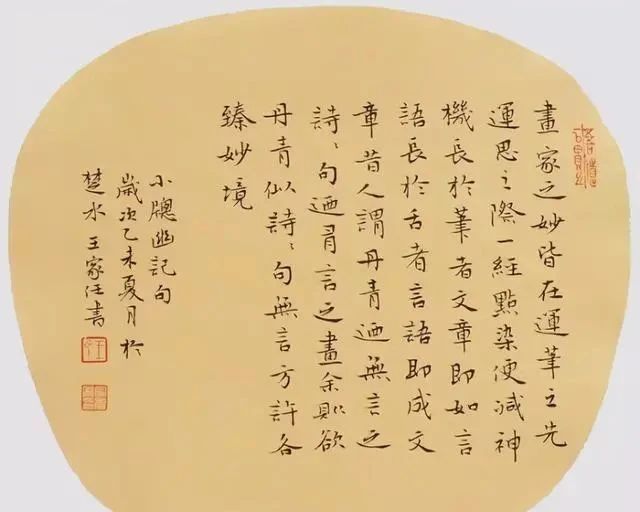 畫家之妙皆在運筆之先
運思之際一經點染便減神
機長於筆者文章即如言
語長於舌者言語即成文
章昔人謂丹青迺無言之
詩〻句迺有言之畫余則欲
丹青似詩〻句無言方許各
臻妙境
小牕幽記句
歲次乙未夏月於
楚水王家任書